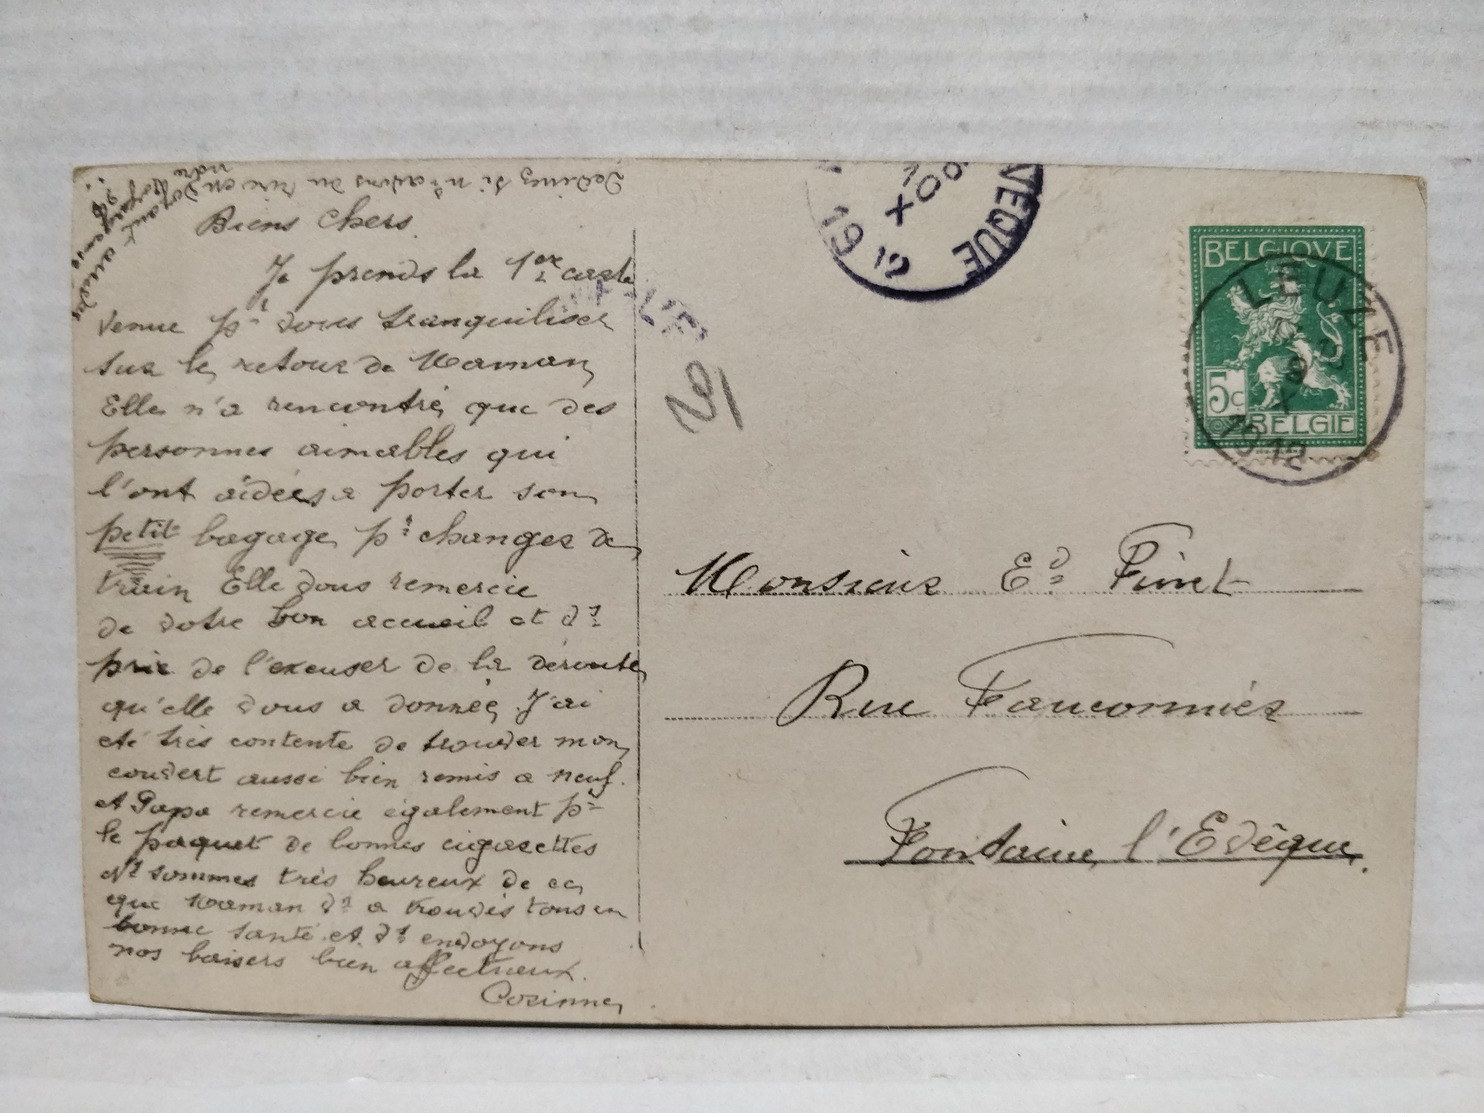 Devinez si n's avions du rire en voyant
notre voyageuse
Biens chers
Je prends la 1ere carte
venue pr vous tranquiliser
sur le retour de Maman
Elle n'a rencontré que des
personnes aimables qui
l'ont aidées a porter son
petit bagage pr changer de
train Elle vous remercie
de votre bon accueil et vs
prie de l'excuser de la déroute
qu'elle vous a donnée J'ai
été très contente de trouver mon
couvert aussi bien remis a neuf.
et Papa remercie également pr
le paquet de bonnes cigarettes
Ns sommes très heureux de ce
que Maman vs a trouvés tous en
bonne santé et vs envoyons
nos baisers bien affectueux.
Corinne
VEQUE
10
X
1912
BELGIQUE
5c
BELGIE
LEUZE
9
X
1912
Monsieur Ed. Pinet
Rue Fauconnier
Fontaine l'Evêque.